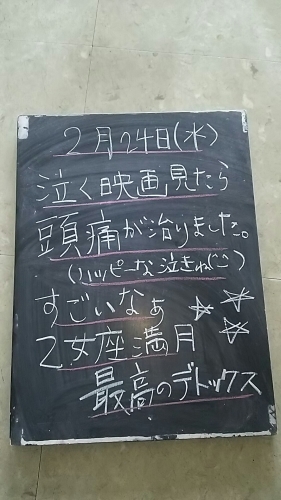 2月24日(水)
泣く映画見たら
頭痛が治りました。
(ハッピーな泣きねこ)
すごいなぁ
乙女座満月
最高のデトックス